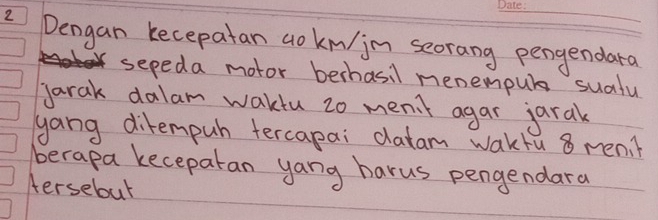 Date:
2 Dengan kecepatan 40 km/jm seorang pengendara
sepeda motor berhasil menempuh suatu
jarak dalam waktu 20 menit agar jarak
yang ditempuh tercapai dalam waktu 8 menit
berapa kecepatan yang harus pengendara
tersebut